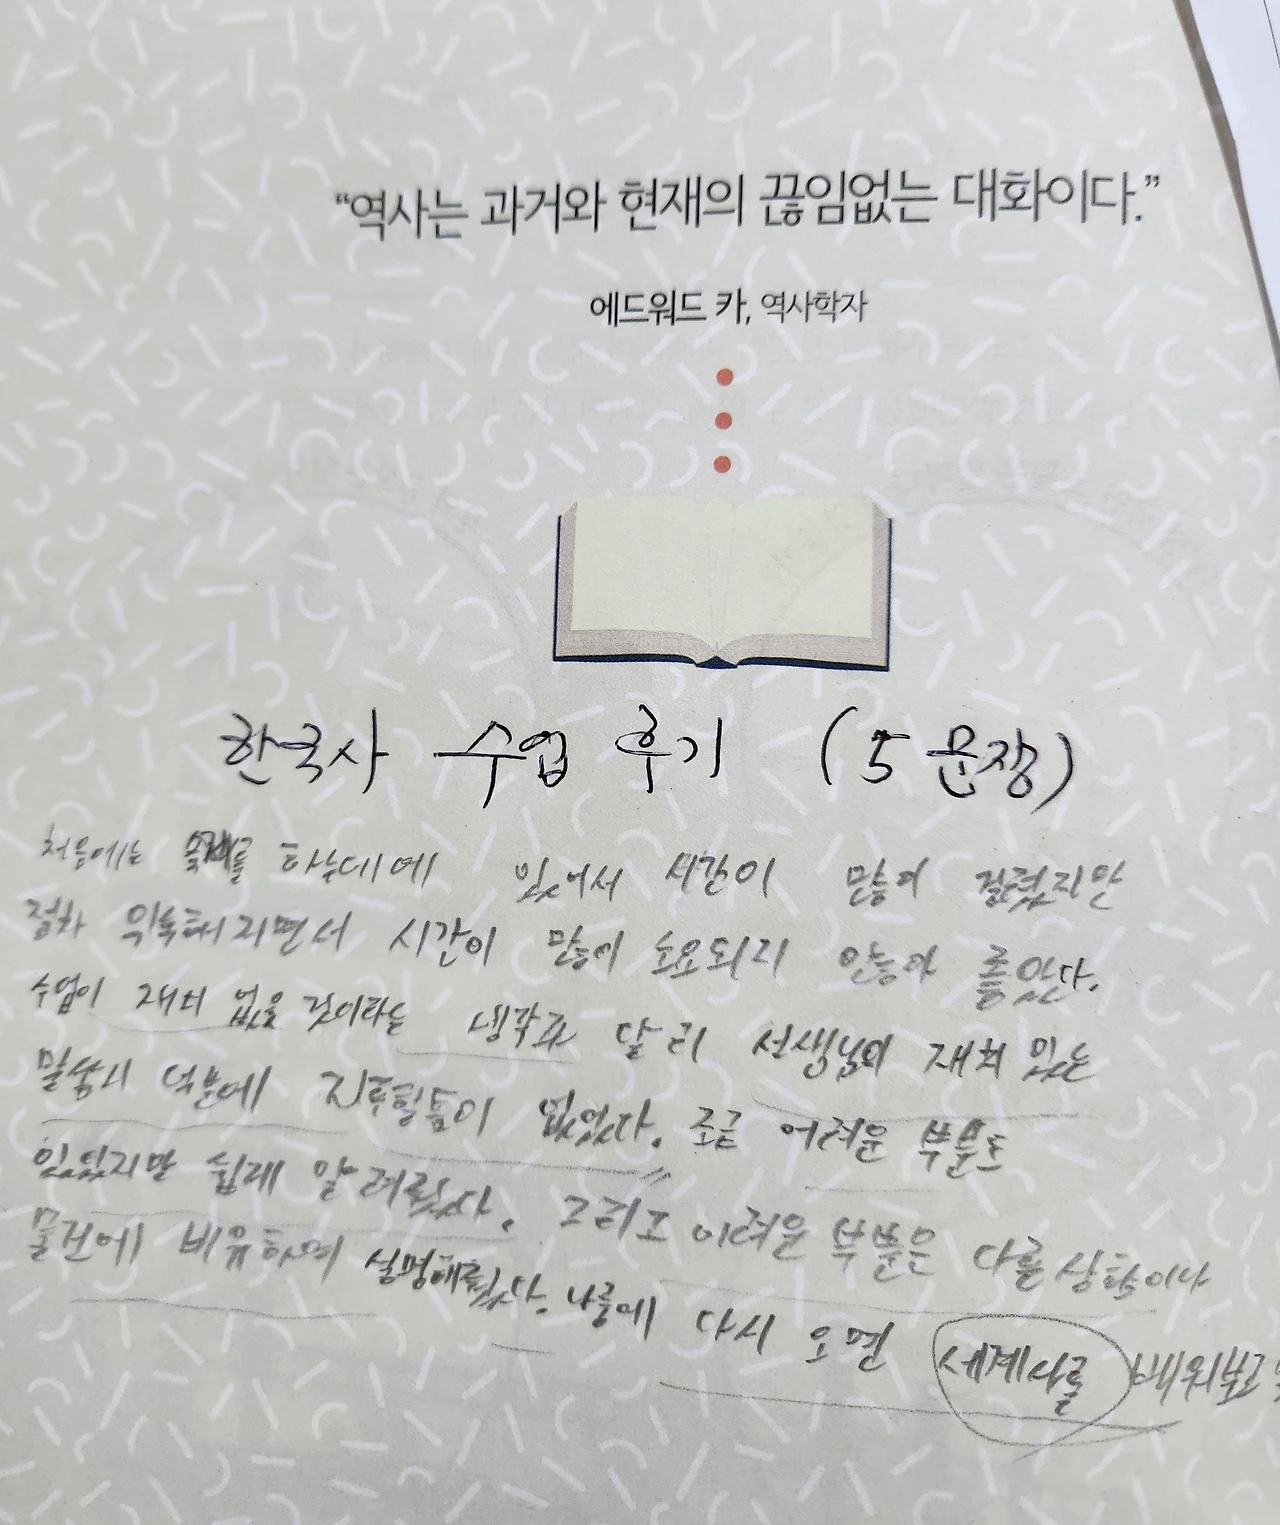 “역사는 과거와 현재의 끊임없는 대화이다.”
에드워드 카, 역사학자
한국사 수업 후기 (5문장)
처음에는 숙제를 하는데에 있어서 시간이 많이 걸렸지만
점차 익숙해지면서 시간이 많이 소요되지 않아
수업이 재미 없을 것이라는 생각과 달리 선생님의 재미 있는
말씀 덕분에 지루할틈이 없었다. 조금 어려운 부분도
있었지만 쉽게 알려줬다. 그리고 어려운 부분은 다른 상황이나
물건에 비유하며 설명해줬다. 나중에 다시 오면 세계사를 배워보고